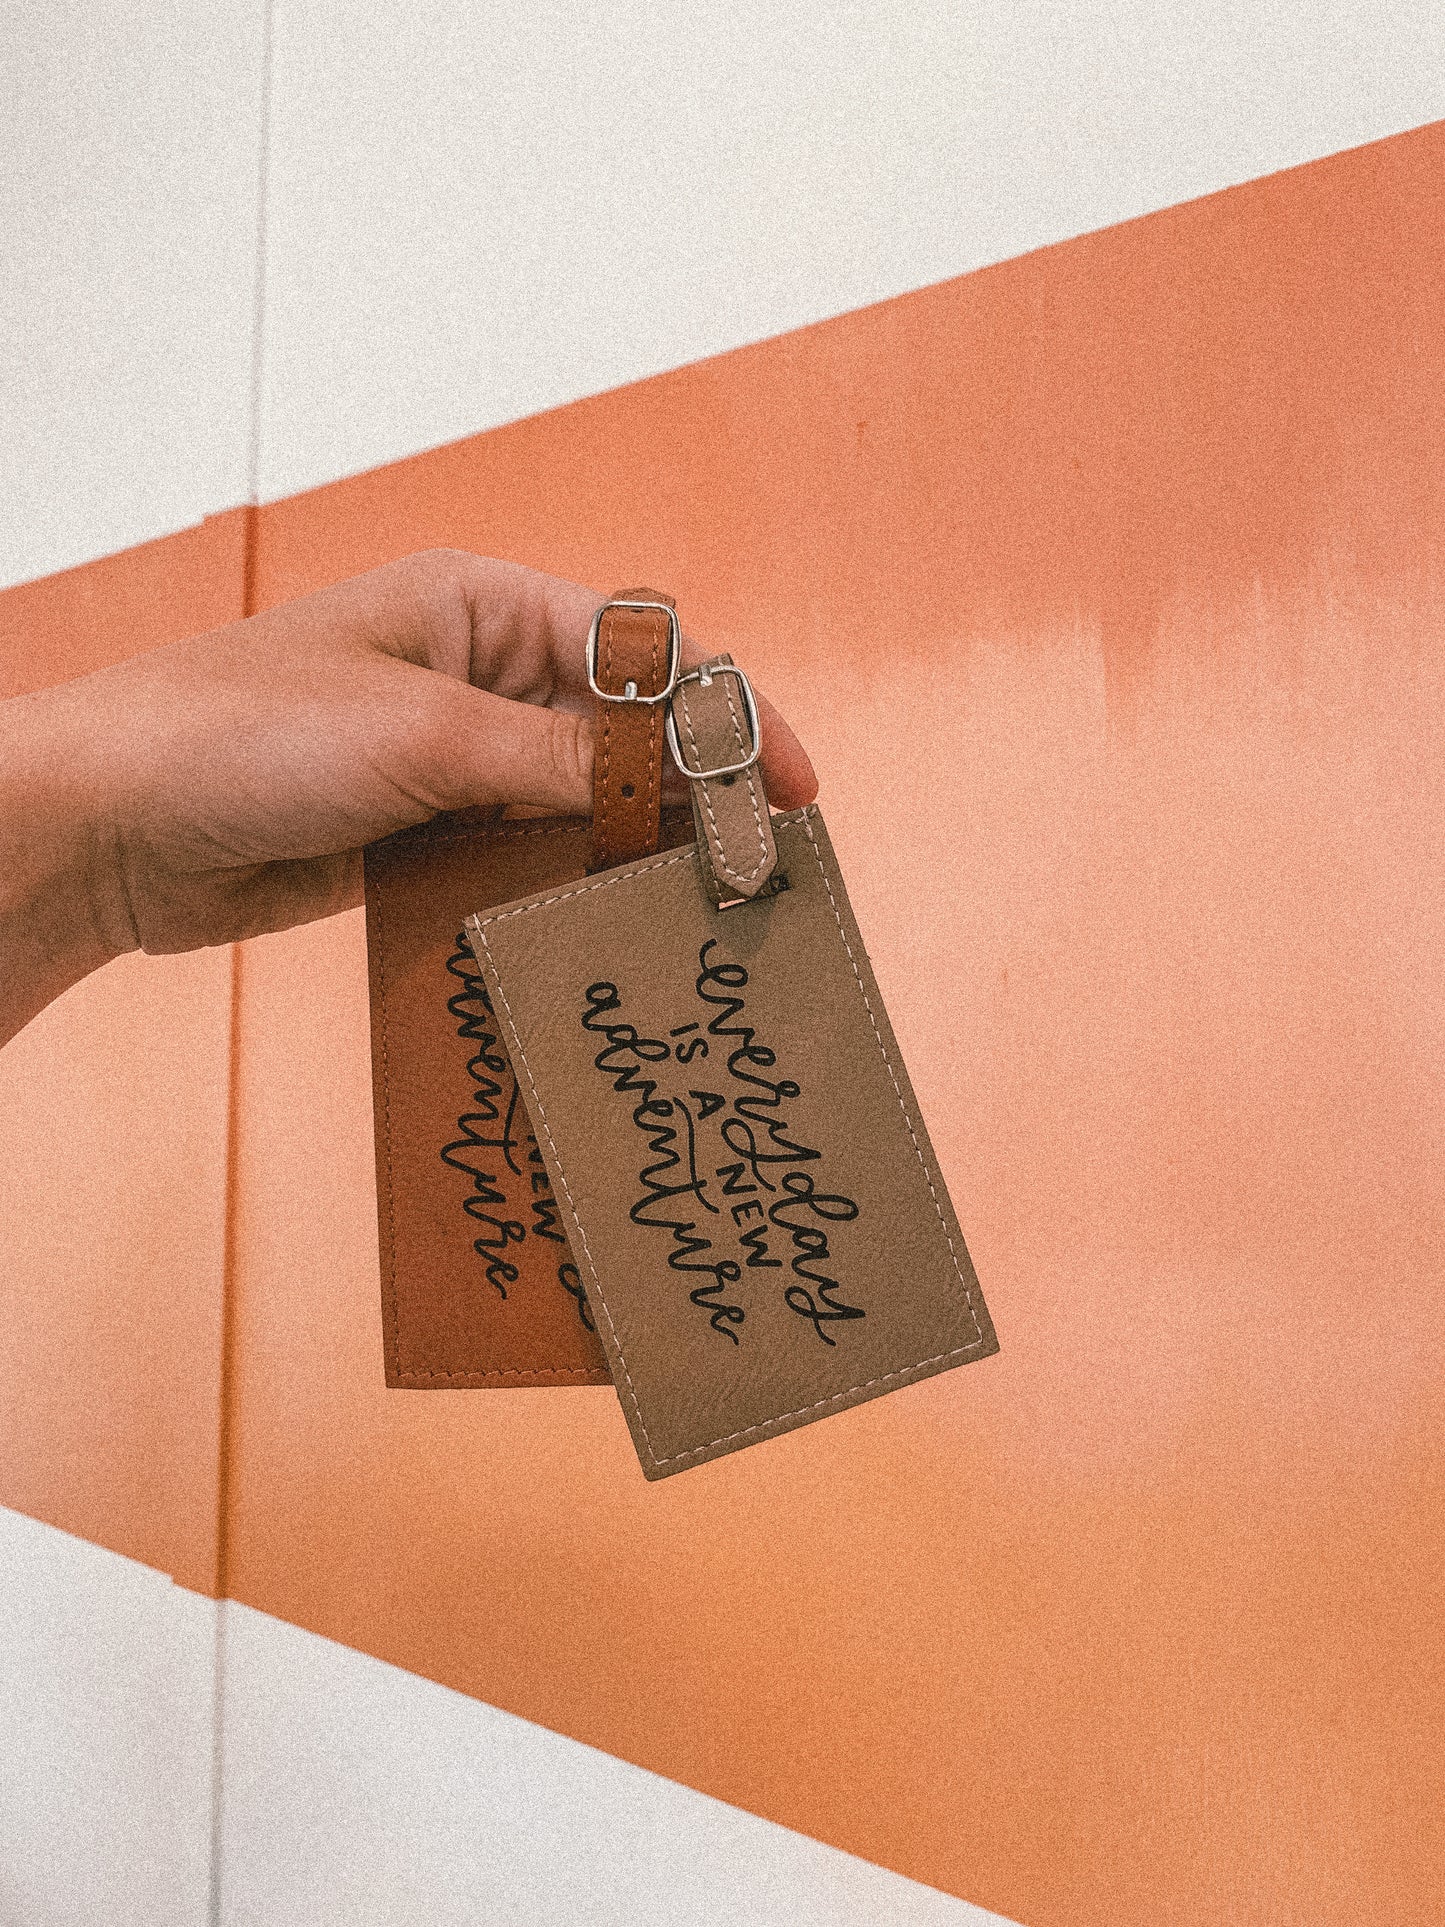 everyday
IS A NEW
adventure
NEW
adventure